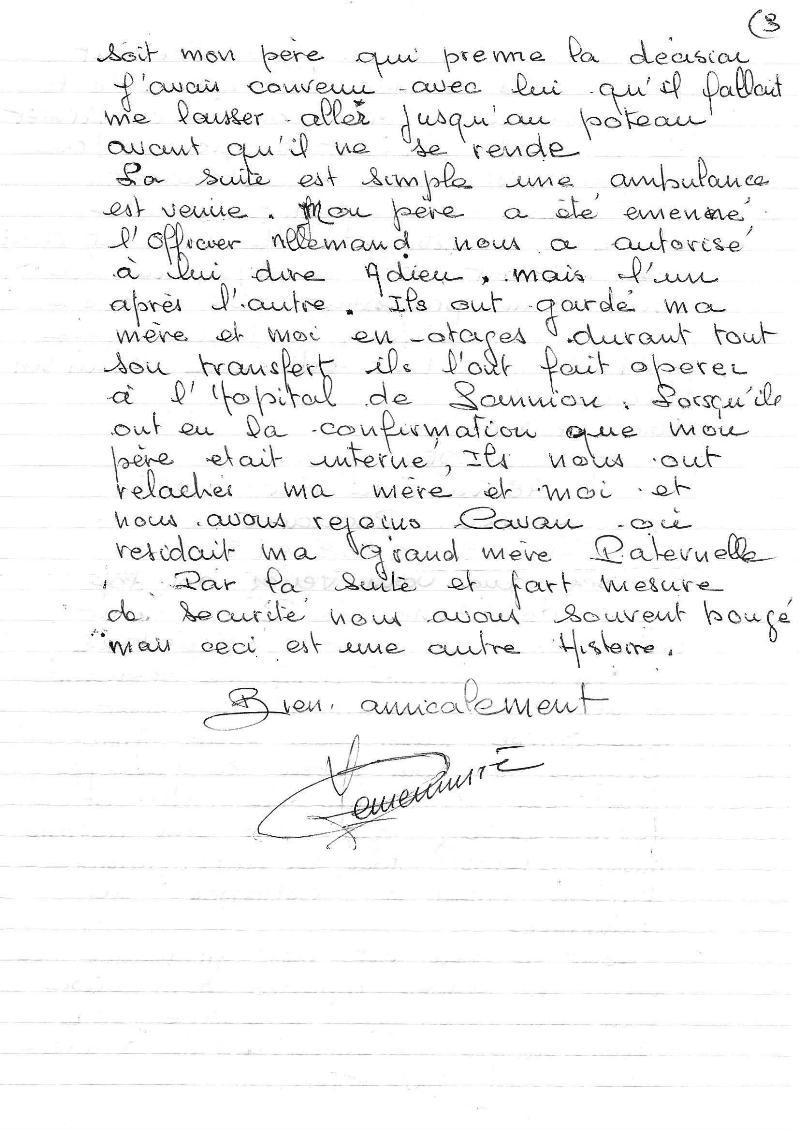 (3
soit mon père qui prenne la décision
J'avais convenu avec lui qu'il fallait
me laisser aller jusqu'au poteau
avant qu'il ne se rende
La suite est simple une ambulance
est venue. Mon père a été emmené
l'Officier Allemand nous a autorisé
à lui dire Adieu, mais l'un
après l'autre. Ils ont gardé ma
mère et moi en otages durant tout
son transfert ils l'ont fait operer
à l'Hopital de Lannion. Lorsqu'ils
ont eu la confirmation que mon
père etait interne, Ils nous ont
relachés ma mère et moi et
nous avons rejoins Cavan où
residait ma Grand mère Paternelle
Par la suite et part mesure
de securité nous avons souvent bougé
mais ceci est une autre Histoire.
Bien amicalement